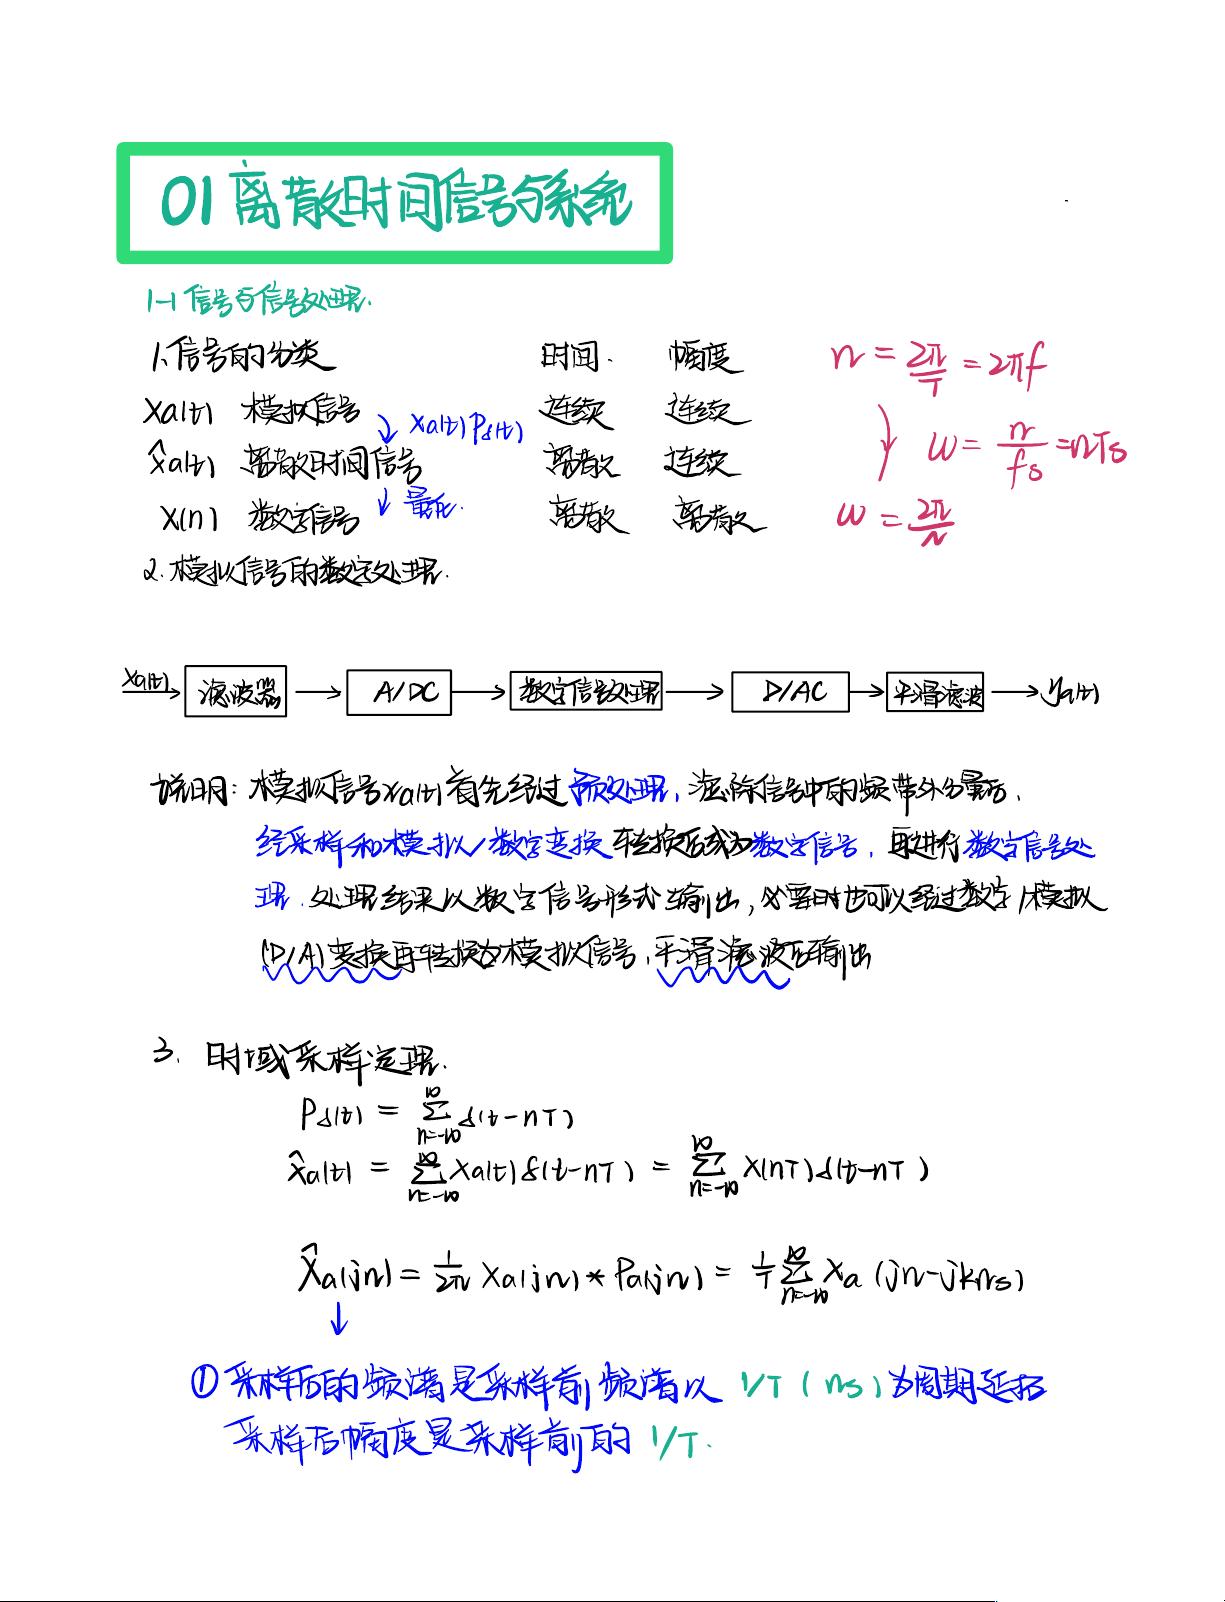 01 离散时间信号与系统
1-1 信号与信号处理.
1.信号的分类 时间. 幅度 Ω = 2π/T = 2πf
Xa(t) 模拟信号 ↓ Xa(t)Pδ(t) 连续 连续
X̂a(t) 离散时间信号 离散 连续 ω = Ω/fs = ΩTs
X(n) 数字信号 ↓ 量化. 离散 离散 ω = 2π/N
2.模拟信号的数字处理.
Xa(t) → 滤波器 → A/DC → 数字信号处理 → D/AC → 平滑滤波 → ya(t)
说明: 模拟信号xa(t)首先经过预处理, 滤除信号中的频带外分量后,
经采样和模拟/数字变换 转换后成为数字信号, 再进行数字信号处
理. 处理结果以数字信号形式输出, 必要时也可以经过数字/模拟
(D/A)变换再转换为模拟信号, 平滑滤波后输出
3. 时域采样定理.
Pδ(t) = ∑_{n=-∞}^{∞} δ(t-nT)
x̂a(t) = ∑_{n=-∞}^{∞} Xa(t)δ(t-nT) = ∑_{n=-∞}^{∞} X(nT)δ(t-nT)
X̂a(jΩ) = 1/2π Xa(jΩ) * Pa(jΩ) = 1/T ∑_{n=-∞}^{∞} Xa (jΩ-jkΩs)
↓
① 采样后的频谱是采样前频谱以 1/T (Ωs) 为周期延拓
采样后幅度是采样前的 1/T.